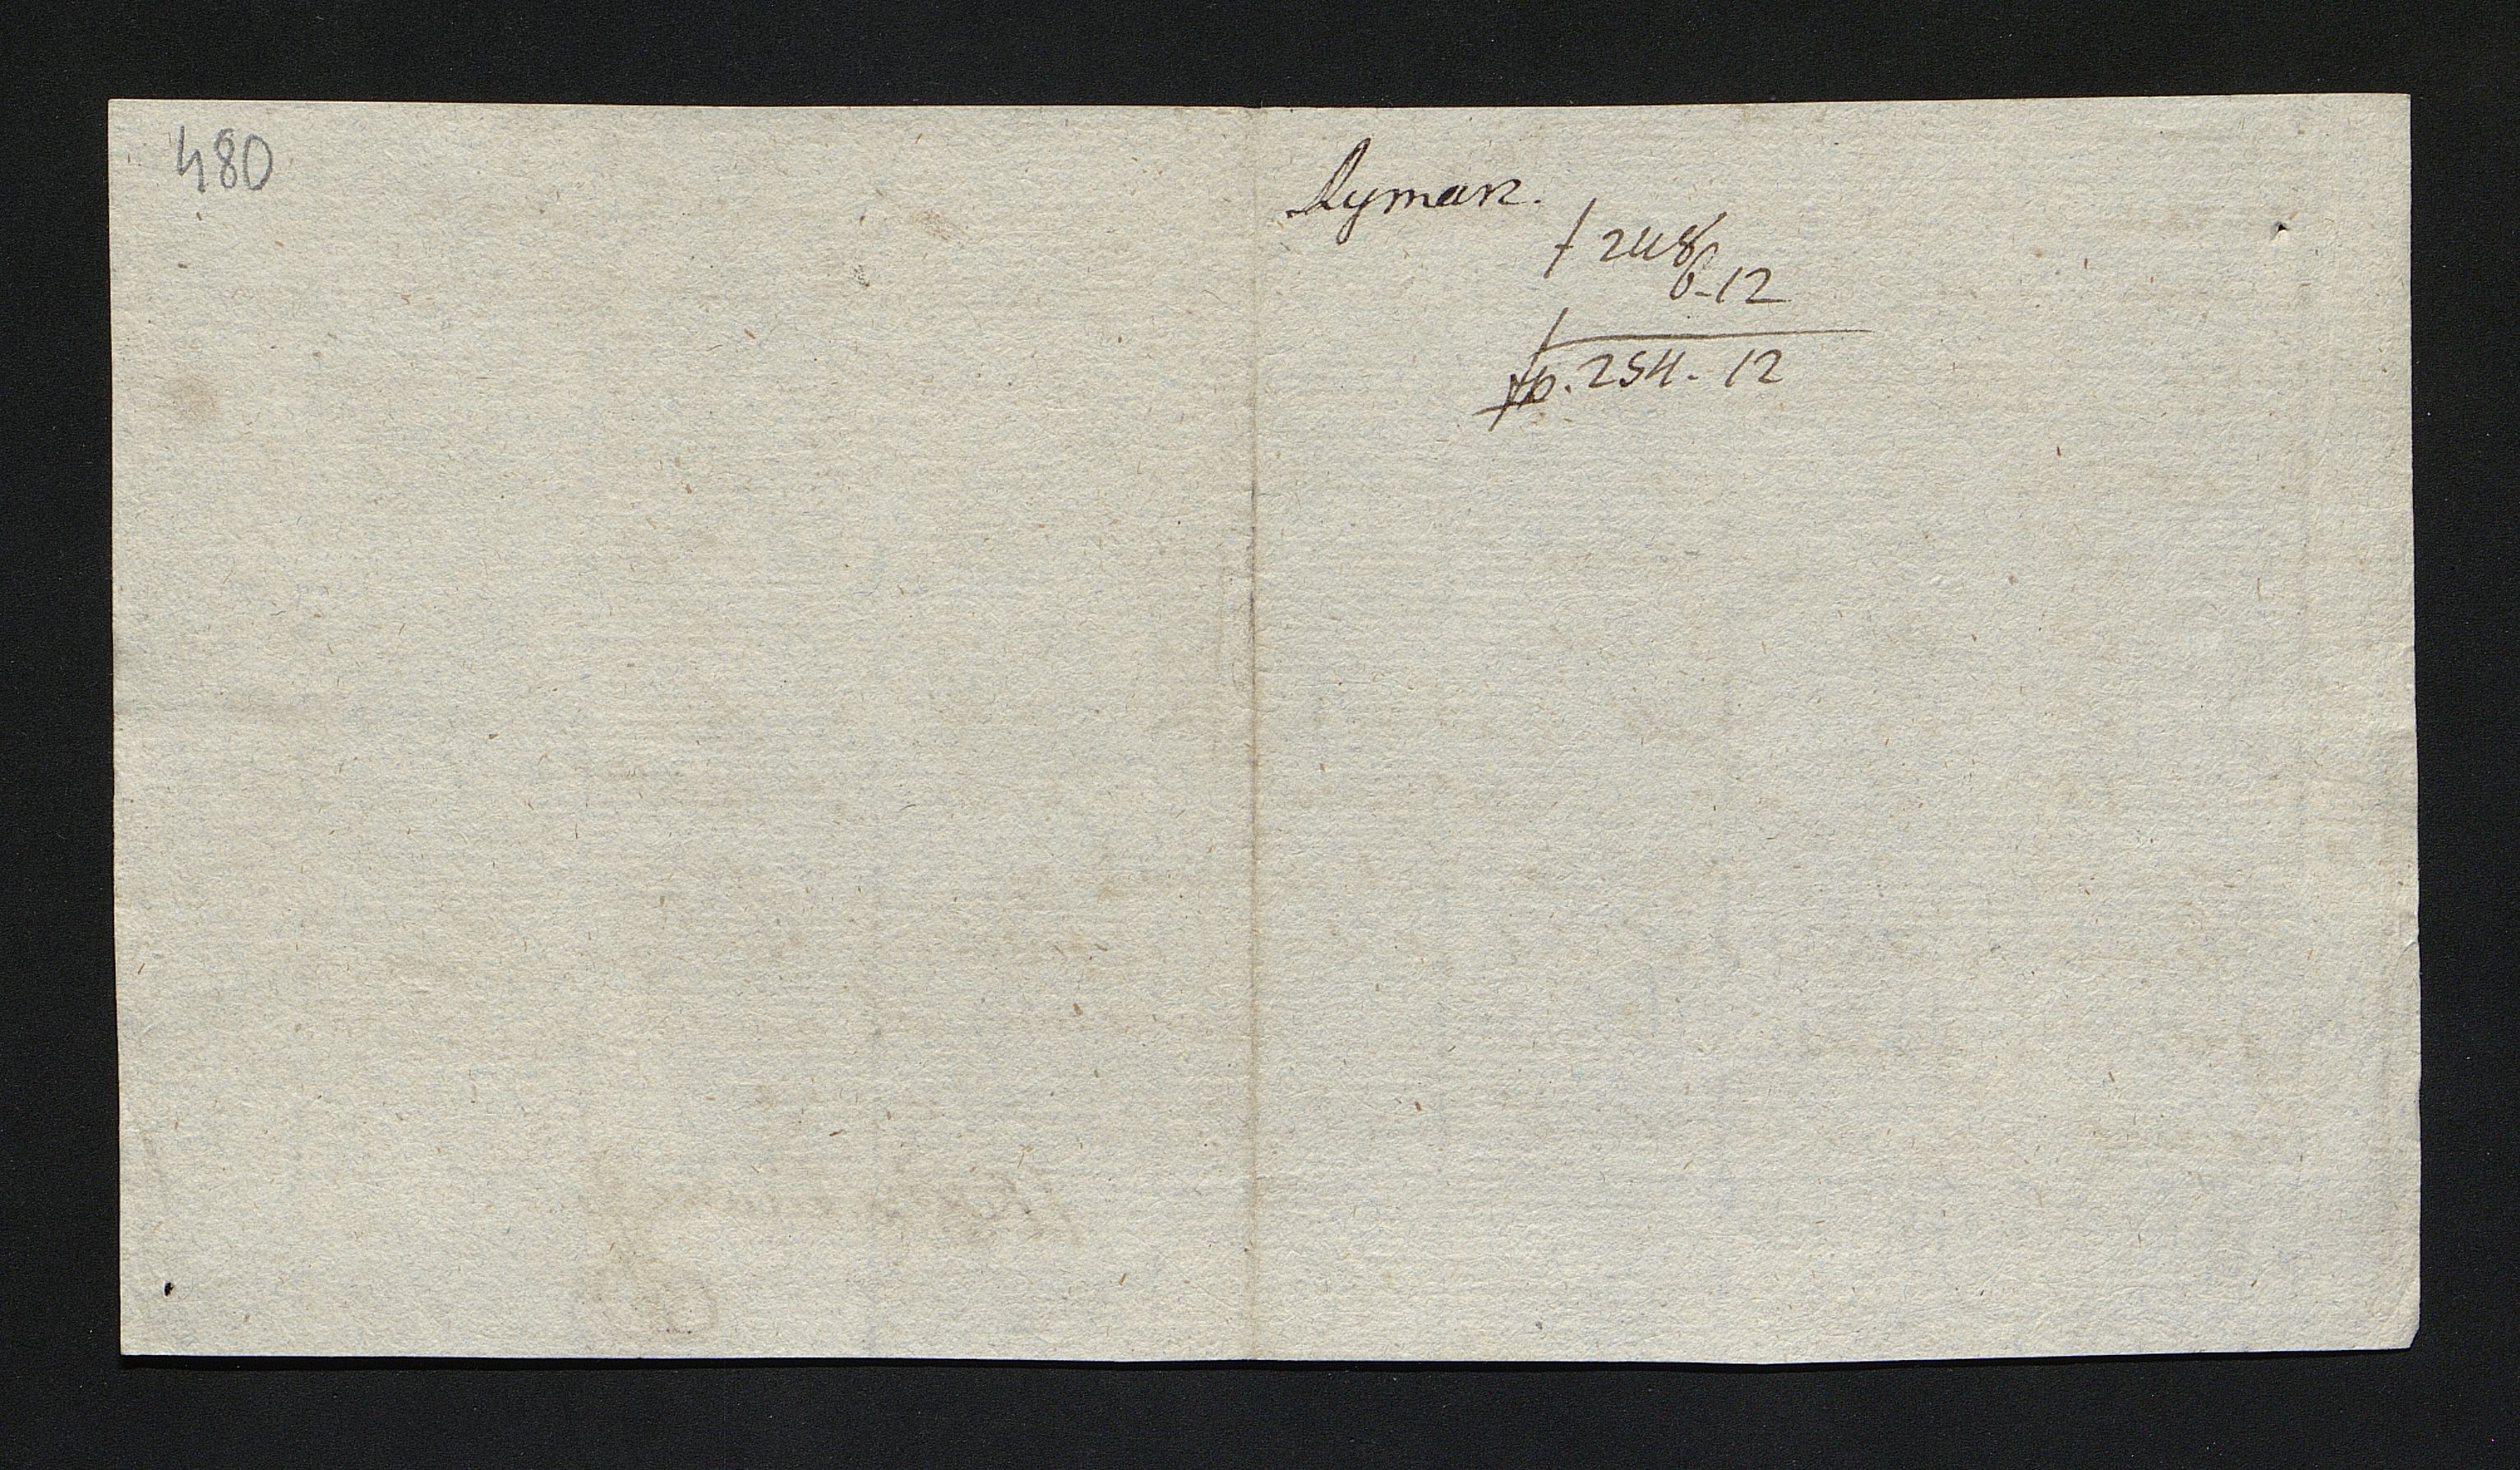 480
Ryman.
f 248
6-12
fp. 254. 12